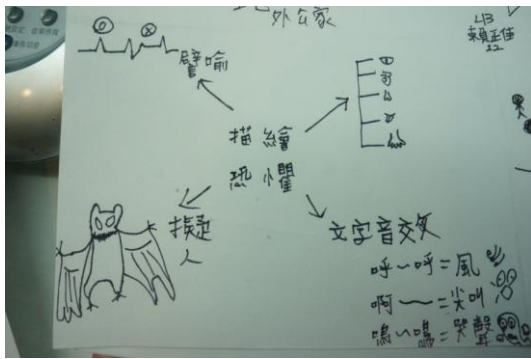 外公家
413
賴正佳
22
譬喻
描繪
恐懼
擬
人
文字音效
呼～呼=風
啊～～=尖叫
嗚～嗚=哭聲